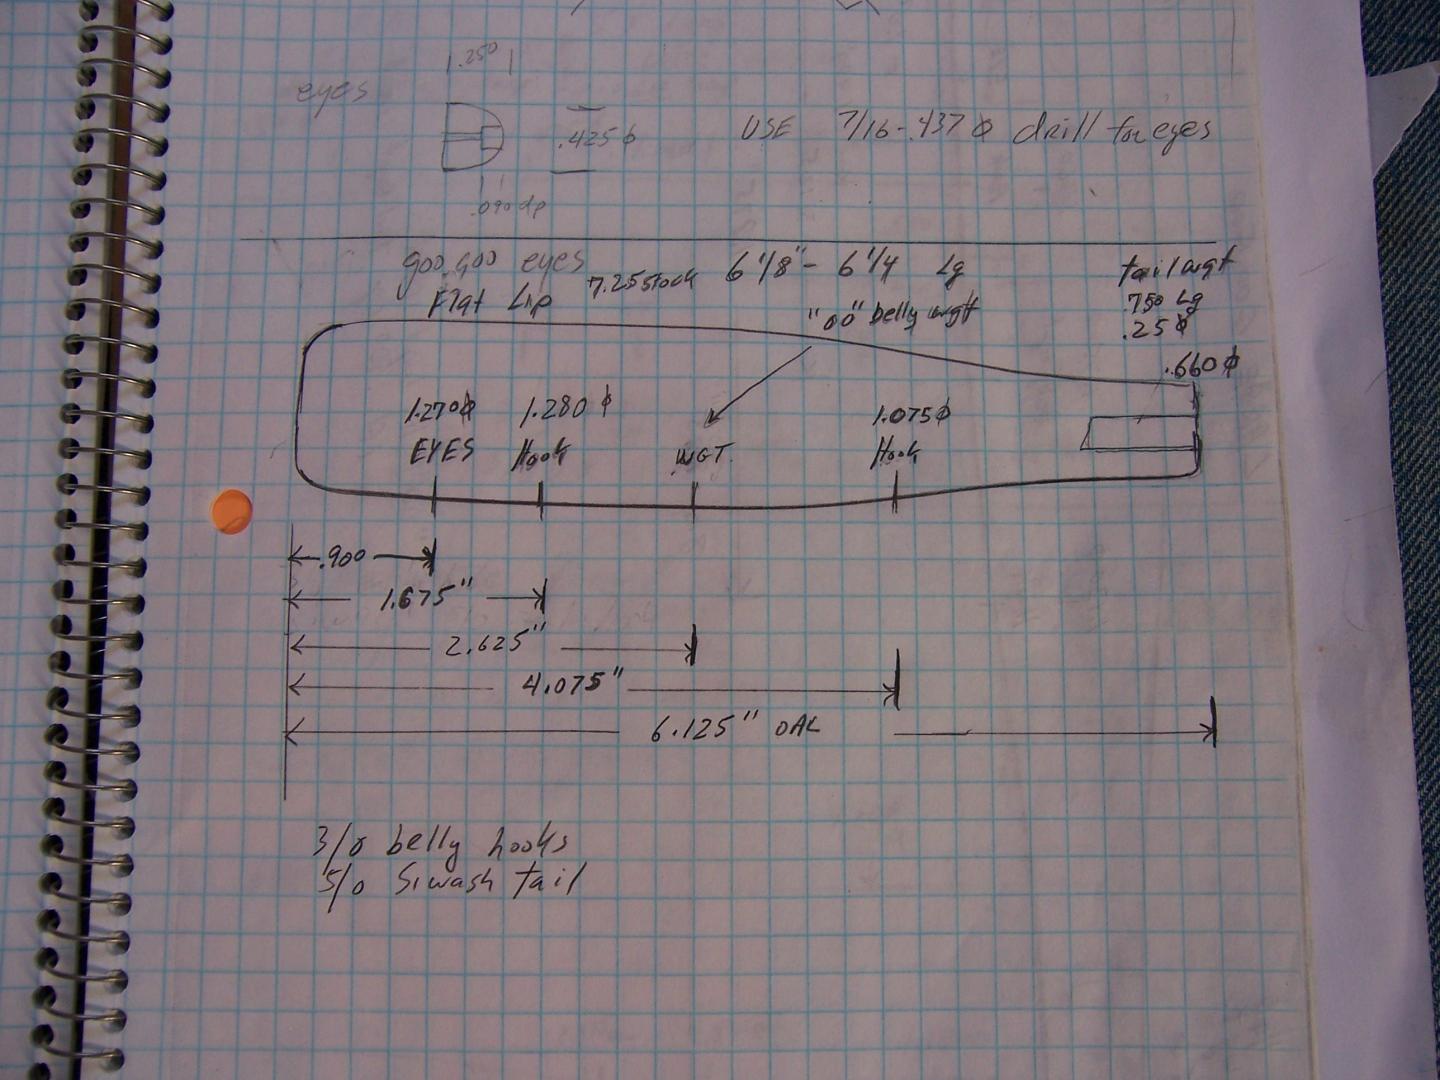 .250
eyes
.425 ϕ
USE 7/16-.437 ϕ drill for eyes
.090 dp
goo.goo eyes
Flat Lip
7.25 stock
6 1/8" - 6 1/4 Lg
"00" belly wgt
tail wgt
.750 Lg
.25 ϕ
.660 ϕ
1.270 ϕ
EYES
1.280 ϕ
Hook
WGT.
1.075 ϕ
Hook
.900
1.675"
2.625"
4.075"
6.125" OAL
3/0 belly hooks
5/0 Siwash tail